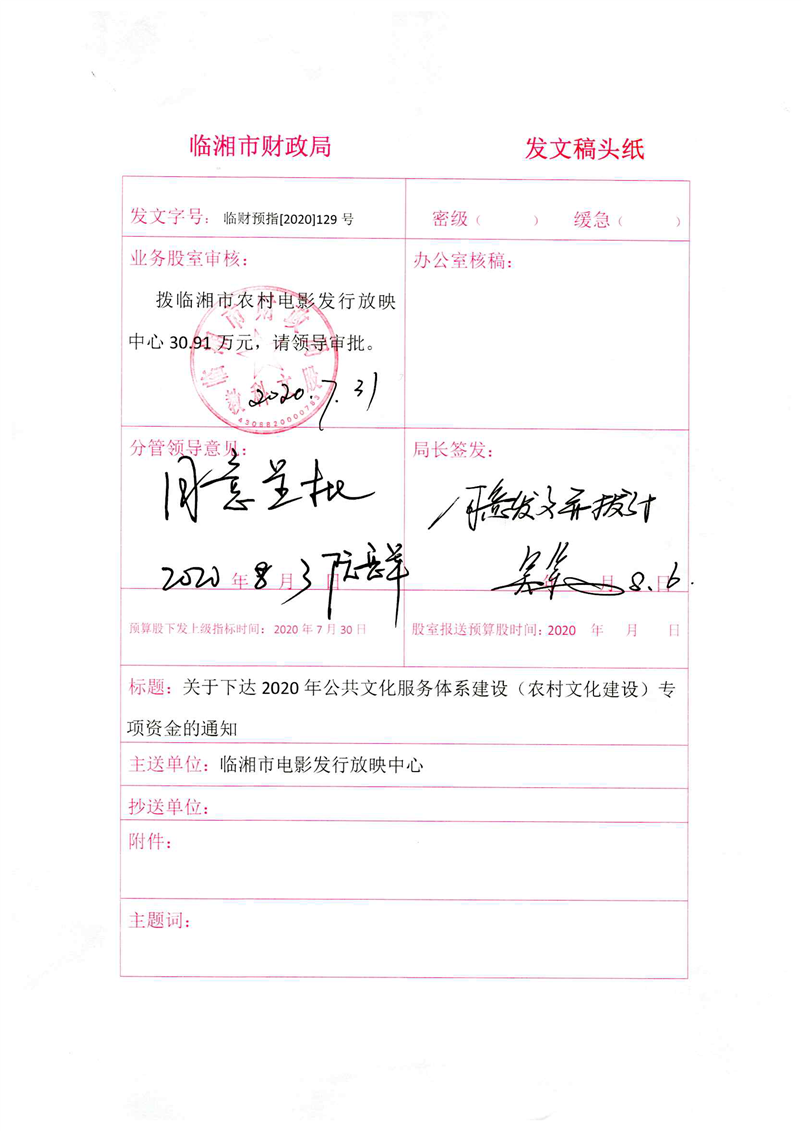 临湘市财政局 发文稿头纸
发文字号：临财预指[2020]129 号
密级（ ） 缓急（ ）
业务股室审核：
拨临湘市农村电影发行放映
中心 30.91 万元，请领导审批。
临湘市财政局
教科文股
4305820000783
2020.7.31
办公室核稿：
分管领导意见：
同意呈批
2020 年 8 月 3 日
局长签发：
同意发文并拨计
月 日 8.6.
预算股下发上级指标时间：2020 年 7 月 30 日
股室报送预算股时间：2020 年 月 日
标题：关于下达 2020 年公共文化服务体系建设（农村文化建设）专
项资金的通知
主送单位：临湘市电影发行放映中心
抄送单位：
附件：
主题词：